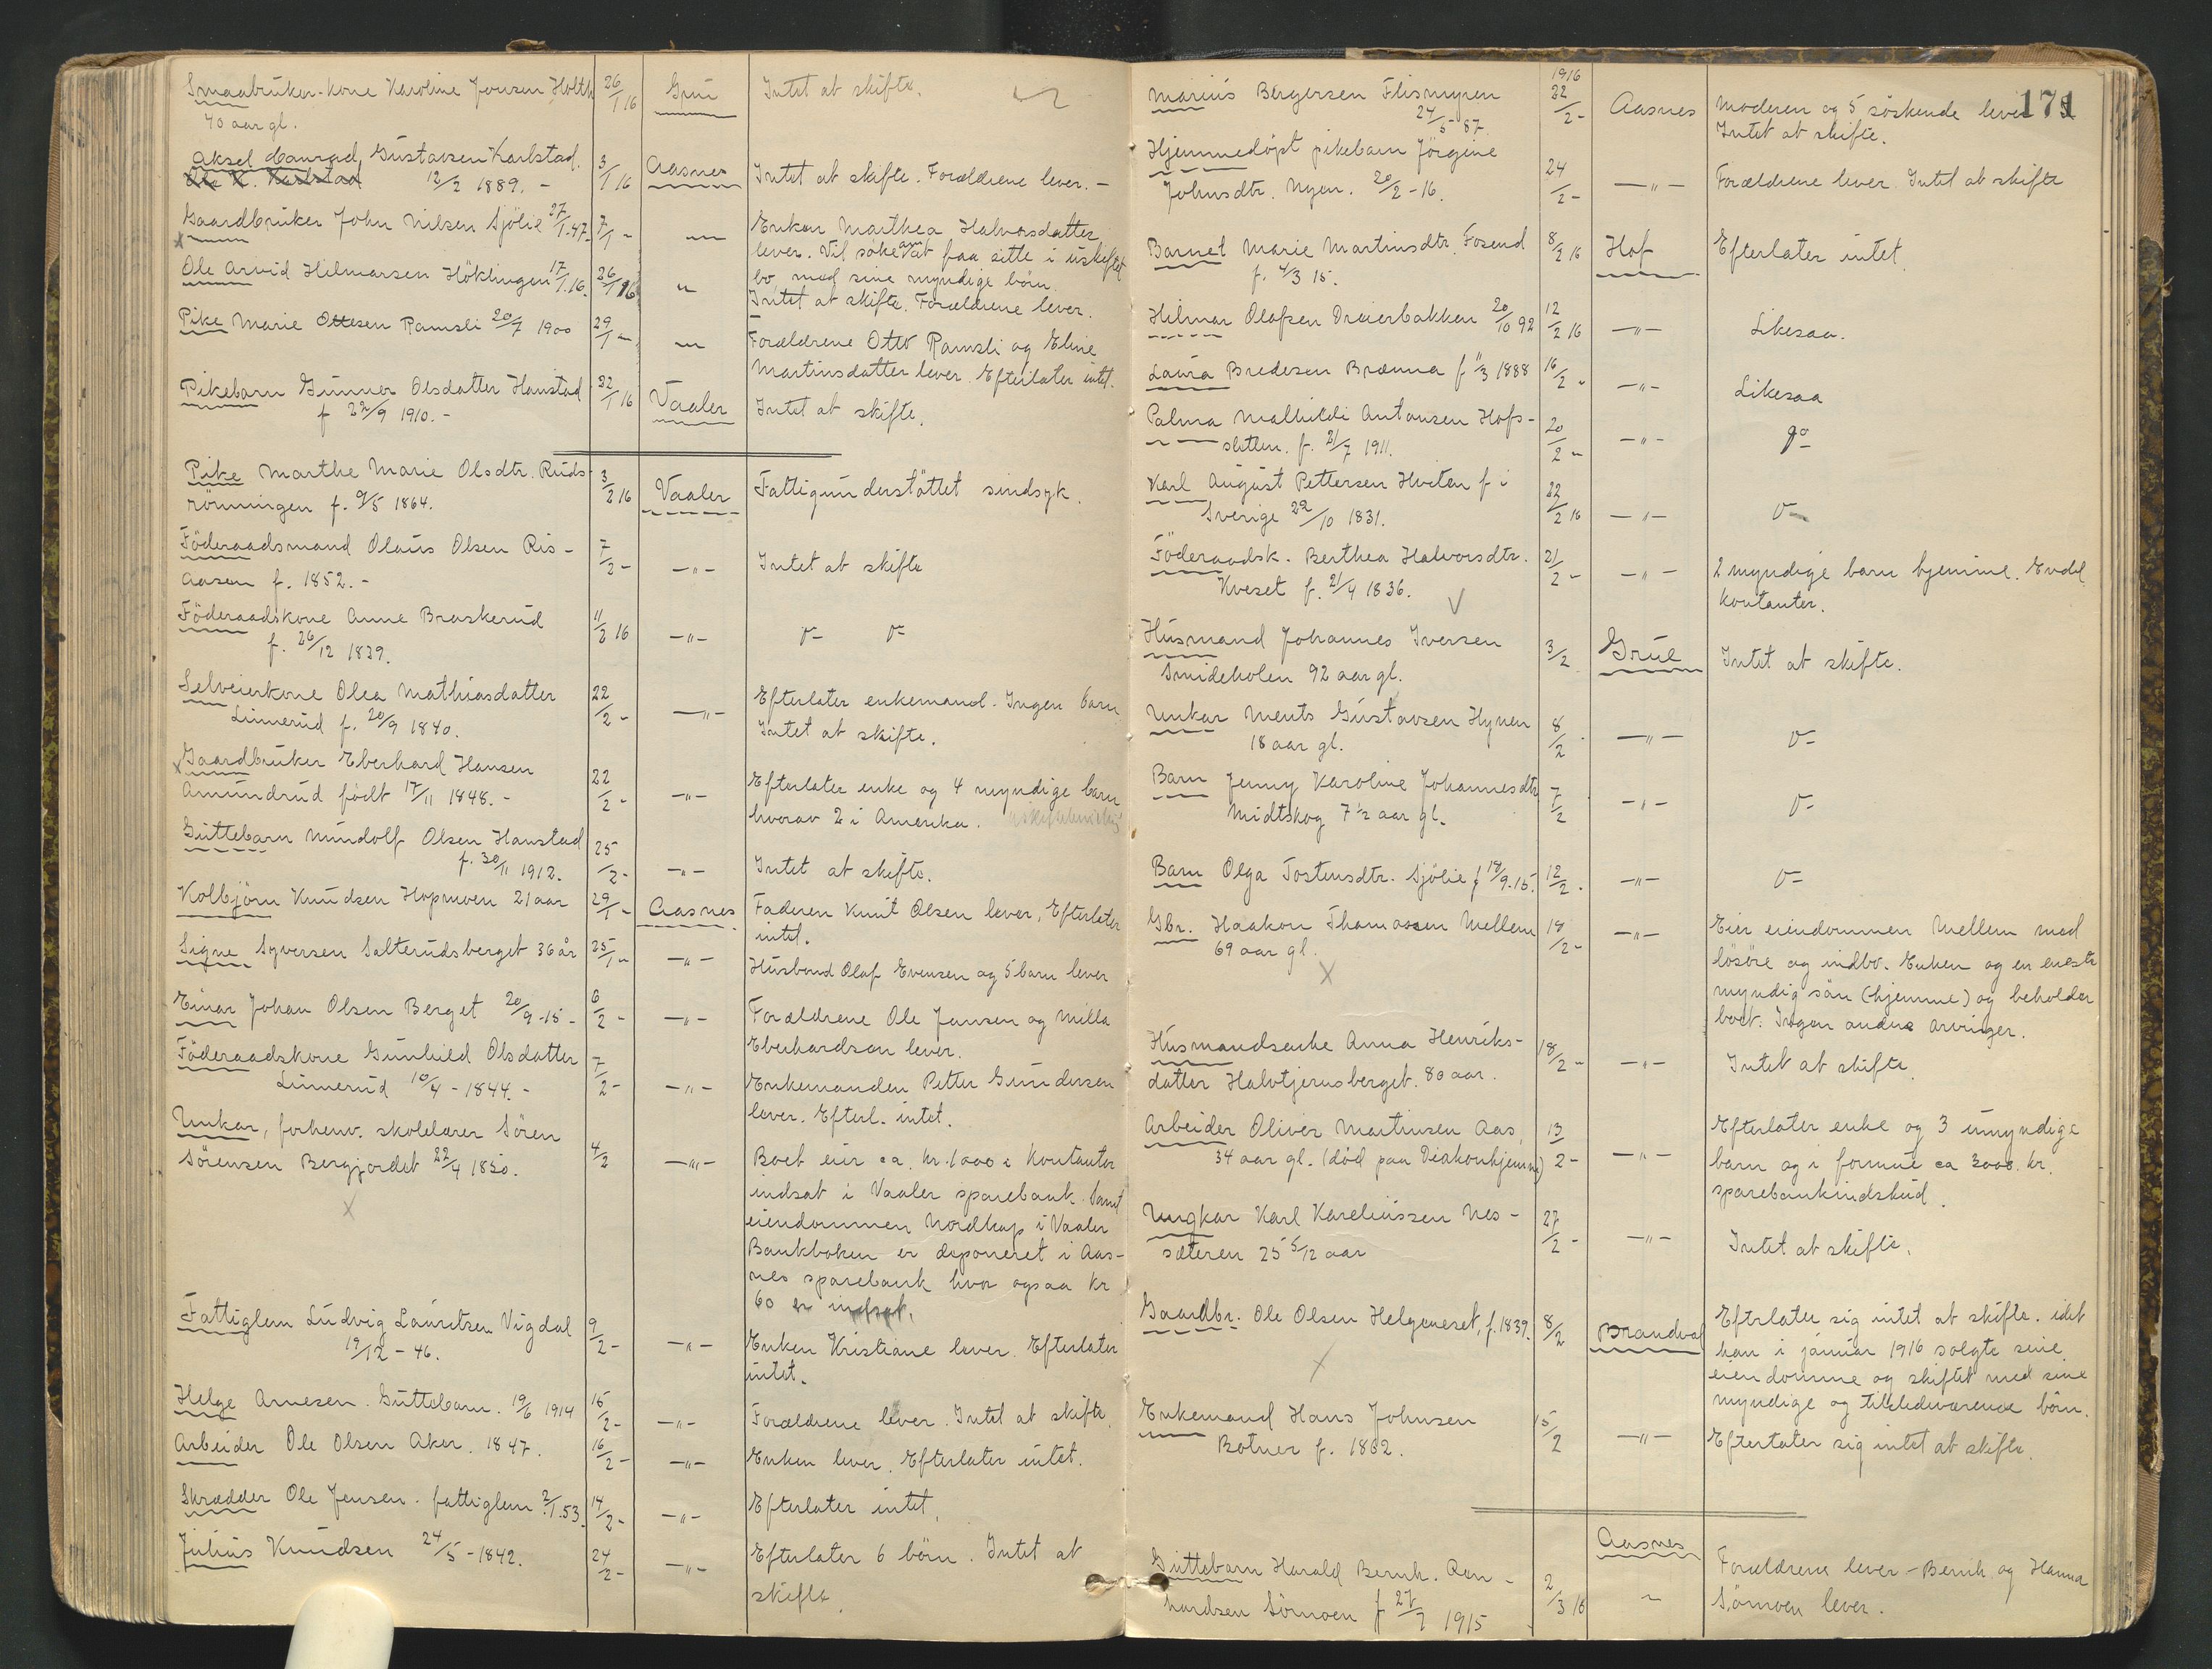 Smaabruker-kone Karoline Jonsen Holth 26/1 16 Grue Intet at skifte.
40 aar gl.
Aksel Conrad Gustavsen Karlstad. 3/1 16 Aasnes Intet at skifte. Forældrene lever. -
12/2 1889. -
Gaardbruker John Nilsen Sjölie 27/1.47. 7/1 - -"- Enken Marthea Halvorsdatter
lever. Vil söke om at faa sitte i uskiftet
bo med sine myndige börn.
Ole Arvid Hilmarsen Höklingen 17/1.16. 26/1 16 " Intet at skifte. Forældrene lever.
Pike Marie Ottesen Ramsli 20/7 1900 29/1 - -"- Forældrene Otto Ramsli og Eline
Martinsdatter lever. Efterlater intet.
Pikebarn Gunner Olsdatter Hanstad 22/1 16 Vaaler Intet at skifte.
f 22/9 1910. -
Pike Marthe Marie Olsdtr. Ruds- 3/2 16 Vaaler Fattigunderstöttet sindsyk.
rönningen f. 9/5 1864.
Föderaadsmand Olaus Olsen Ris- 7/2 - -"- Intet at skifte
aasen f. 1852. -
Föderaadskone Anne Braskerud 11/2 16 -"- v- v-
f. 26/12 1839.
Selveierkone Olea Mathiasdatter 22/2 - -"- Efterlater enkemand. Ingen barn
Linnerud f. 20/9 1840. Intet at skifte.
Gaardbruker Eberhard Hansen 22/2 - -"- Efterlater enke og 4 myndige barn
Amundrud födt 17/11 1848. - hvorav 2 i Amerika.
Guttebarn Mindolf Olsen Hanstad 25/2 - -"- Intet at skifte.
f. 30/11 1912.
Kolbjörn Knudsen Hopmoen 21 aar 29/1 - Aasnes Faderen Knut Olsen lever, Efterlater
intet.
Signe Syversen Salterudsberget 36 år 25/1 - -"- Husbond Olaf Evensen og 5 barn lever
Einar Johan Olsen Berget 20/9 -15 - 6/2 - -"- Forældrene Ole Jansen og Milla
Eberhardson lever.
Föderaadskone Gunhild Olsdatter 7/2 - -"- Enkemanden Petter Gundersen
Linnerud 10/4 - 1844. - lever. Efterl. intet.
Unkar, forhenv. skolelærer Sören 4/2 -"- Boet eier ca. kr. 1000 i kontanter
Sörensen Bergjordet 22/4 1850. indsat i Vaaler sparebank. Samt
eiendommen Nordkap i Vaaler
Bankboken er deponeret i Aas-
nes sparebank hvor ogsaa kr
60 er indsat.
Fattiglem Ludvig Lauritsen Vigdal 9/2 - -"- Enken Kristiane lever. Efterlater
19/12 - 46. intet.
Helge Arnesen. Guttebarn. 19/6 1914 15/2 - -"- Forældrene lever. Intet at skifte.
Arbeider Ole Olsen Aker. 1847. 16/2 - -"- Enken lever. Efterlater intet.
Skrædder Ole Jensen. fattiglem 2/1.53. 14/2 - -"- Efterlater intet.
Julius Knudsen 24/5 - 1842. 24/2 - -"- Efterlater 6 börn. Intet at
skifte.
171
Marius Bergersen Flismyren 1916 22/2 - Aasnes Moderen og 5 söskende lever
24/5 - 87. Intet at skifte.
Hjemmedöpt pikebarn Jörgine 24/2 - -"- Forældrene lever. Intet at skifte
Johnsdtr. Nyen. 20/2 - 16.
Barnet Marie Martinsdtr. Fosend 8/2 16 Hof Efterlater intet.
f. 4/3 15.
Hilmar Olafsen Dreierbakken 20/10 92 12/2 16 -"- Likesaa.
Laura Bredesen Brænna f 11/3 1888 16/2 - -"- Likesaa
Palma Mathilde Antonsen Hofs- 20/2 - -"- do
sletten. f. 21/7 1911.
Karl August Pettersen Hveten f i 22/2 16 -"- v-
Sverige 29/10 1831.
Föderaadsk. Berthea Halvorsdtr. 21/2 - -"- 2 myndige barn hjemme. Endel
Kveset f. 21/4 1836. kontanter.
Husmand Johannes Iversen 3/2 Grue Intet at skifte.
Smideholen 92 aar gl.
Unkar Ments Gustavsen Hynen 8/2 -"- v-
18 aar gl.
Barn Jenny Karoline Johannesdtr 7/2 -"- v-
Midtskog 7 1/2 aar gl.
Barn Olga Tostensdtr. Sjölie f 18/9.15. 12/2 - -"- v-
Gbr. Haakon Thomassen Mellem 18/2 - -"- Eier eiendommen Mellem med
69 aar gl. lösöre og indbo. Enken og en eneste
myndig sön (hjemme) og beholder
boet. Ingen andre arvinger.
Husmandsenke Anna Henriks- 18/2 - -"- Intet at skifte.
datter Halvtjernsberget. 80 aar.
Arbeider Oliver Martinsen Aas, 13/2 - -"- Efterlater enke og 3 umyndige
34 aar gl. (död paa Diakonhjemme) barn og i formue ca 3000. kr.
sparebankindskud.
Ungkar Karl Kareliussen Nes- 27/2 - -"- Intet at skifte.
sæteren 25 5/12 aar
Gaardbr. Ole Olsen Helgeneset, f. 1839. 8/2 Brandval Efterlater sig intet at skifte. idet
han i januar 1916 solgte sine
eiendomme og skiftet med sine
myndige og tilstedeværende börn.
Enkemand Hans Johnsen 15/2 -"- Efterlater sig intet at skifte.
Botner f. 1832.
Aasnes
Guttebarn Harald Bernh. Ren- 2/3 16 " Forældrene lever - Bernh. og Hanna
hardsen Sörmoen f 27/7 1915 Sörmoen lever.